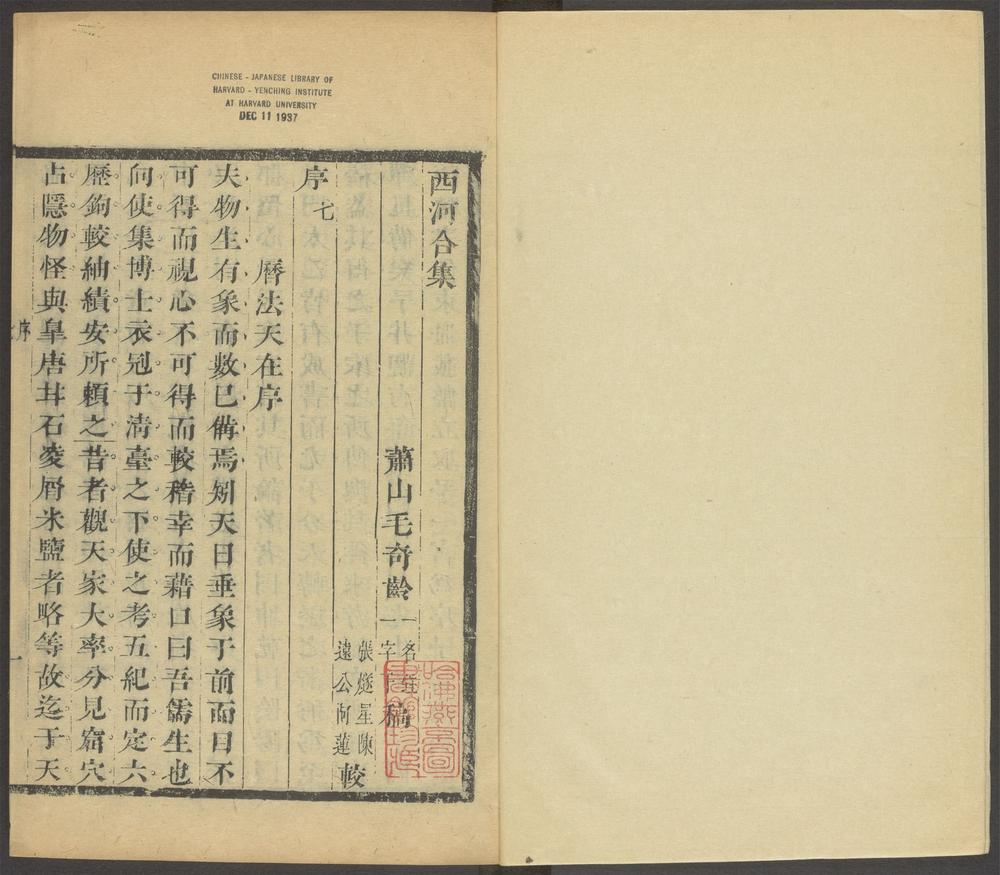 CHINESE - JAPANESE LIBRARY OF
HARVARD - YENCHING INSTITUTE
AT HARVARD UNIVERSITY
DEC 11 1937
西河合集
蕭山毛奇齡
一名
一字
稿
張燧星陳
遠公阿蓮
較
序七
曆法天在序
夫物生有象而數已備焉矧天日垂象于前而目不
可得而視心不可得而較稽幸而藉口曰吾儒生也
向使集博士衣冠于清臺之下使之考五紀而定六
歷鉤較紬績安所賴之昔者觀天家大率分見窟穴
占隱物怪與皇唐甘石凌屑米鹽者略等故迄于天
序
一